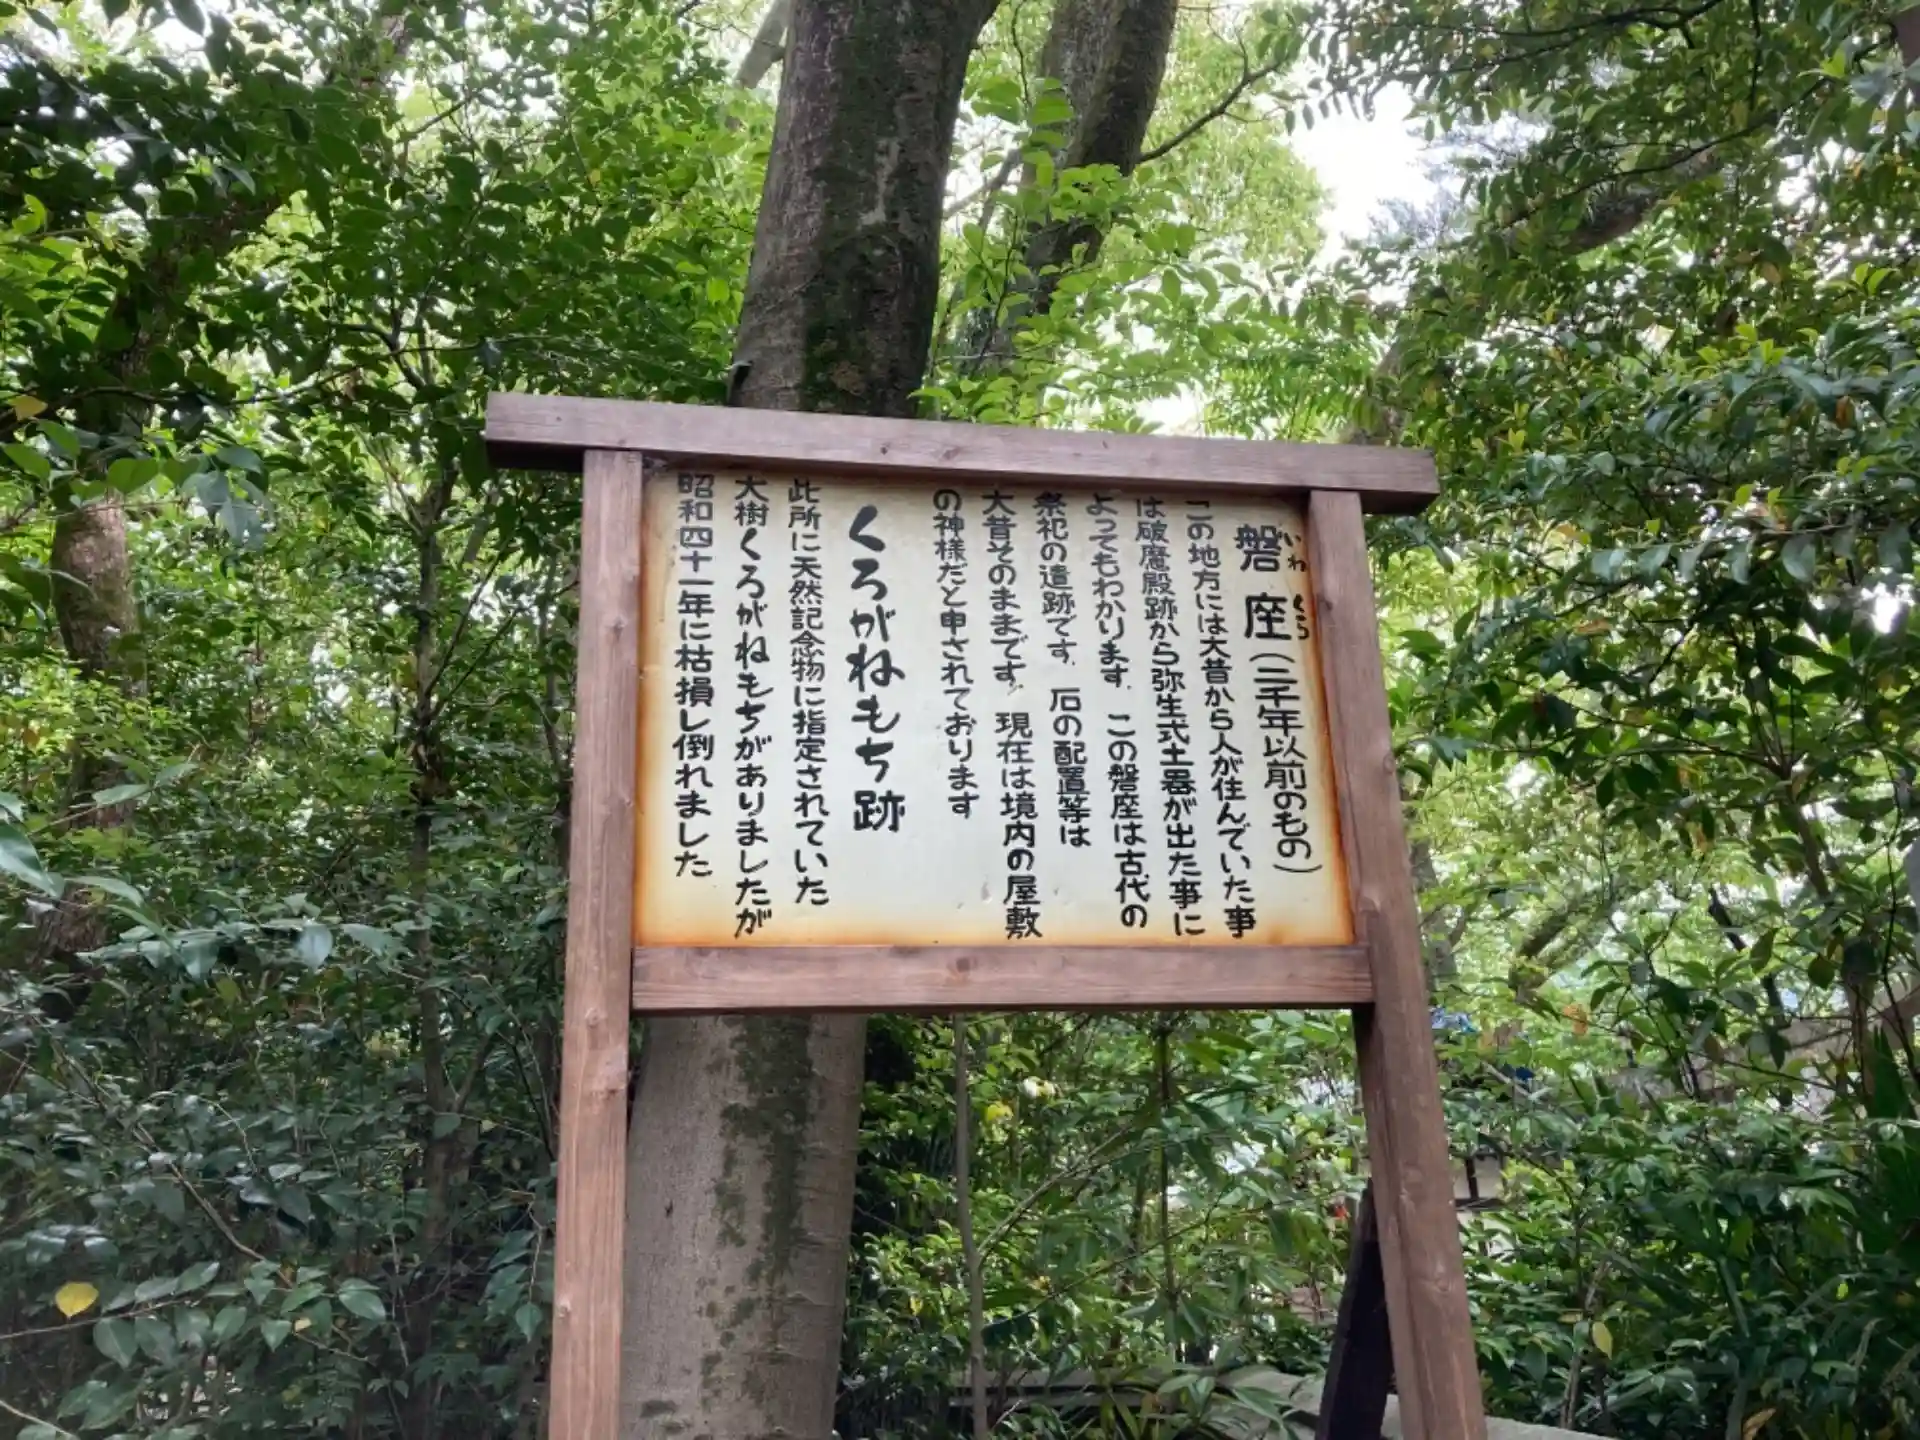 磐座(二千年以前のもの)
いわくら
この地方には大昔から人が住んでいた事
は破魔殿跡から弥生式土器が出た事に
よってもわかります. この磐座は古代の
祭祀の遺跡です. 石の配置等は
大昔そのままです. 現在は境内の屋敷
の神様だと申されております
くろがねもち跡
此所に天然記念物に指定されていた
大樹くろがねもちがありましたが
昭和四十一年に枯損し倒れました